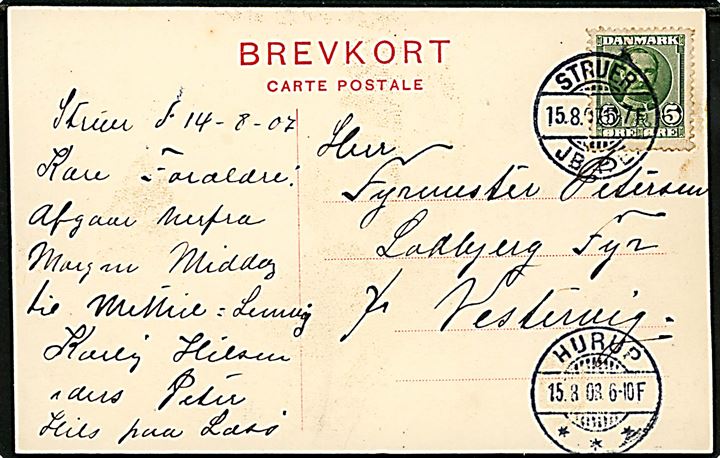 BREVKORT
CARTE POSTALE
DANMARK
5 5
ØRE ØRE
STRUER
15.8.
JB.P.E.
Struer d 14-8-07
Kære Forældre!
Afgaar herfra
Morgen Middag
til = Lemvig
Kærlig Hilsen
ders Peter
Hils paa Læsø
Herr
Fyrmester Petersen
Lodbjerg Fyr
pr Vestervig.
HURUP
15.8.08. 6-10F